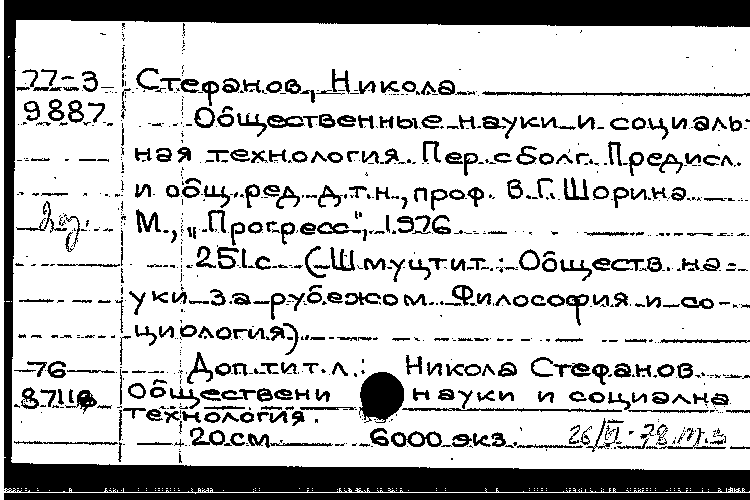 77-3 Стефанов, Никола
9887 Общественные науки и социаль-
ная технология. Пер. с болг. Предисл.
и общ. ред. д.т.н., проф. В.Г. Шорина
М., „Прогресс", 1976
251 с (Шмуцтит.: Обществ. на-
уки за рубежом. Философия и со-
циология).
76 Доп. тит. л.: Никола Стефанов.
Обществени науки и социална
технология.
20 см 6000 экз.